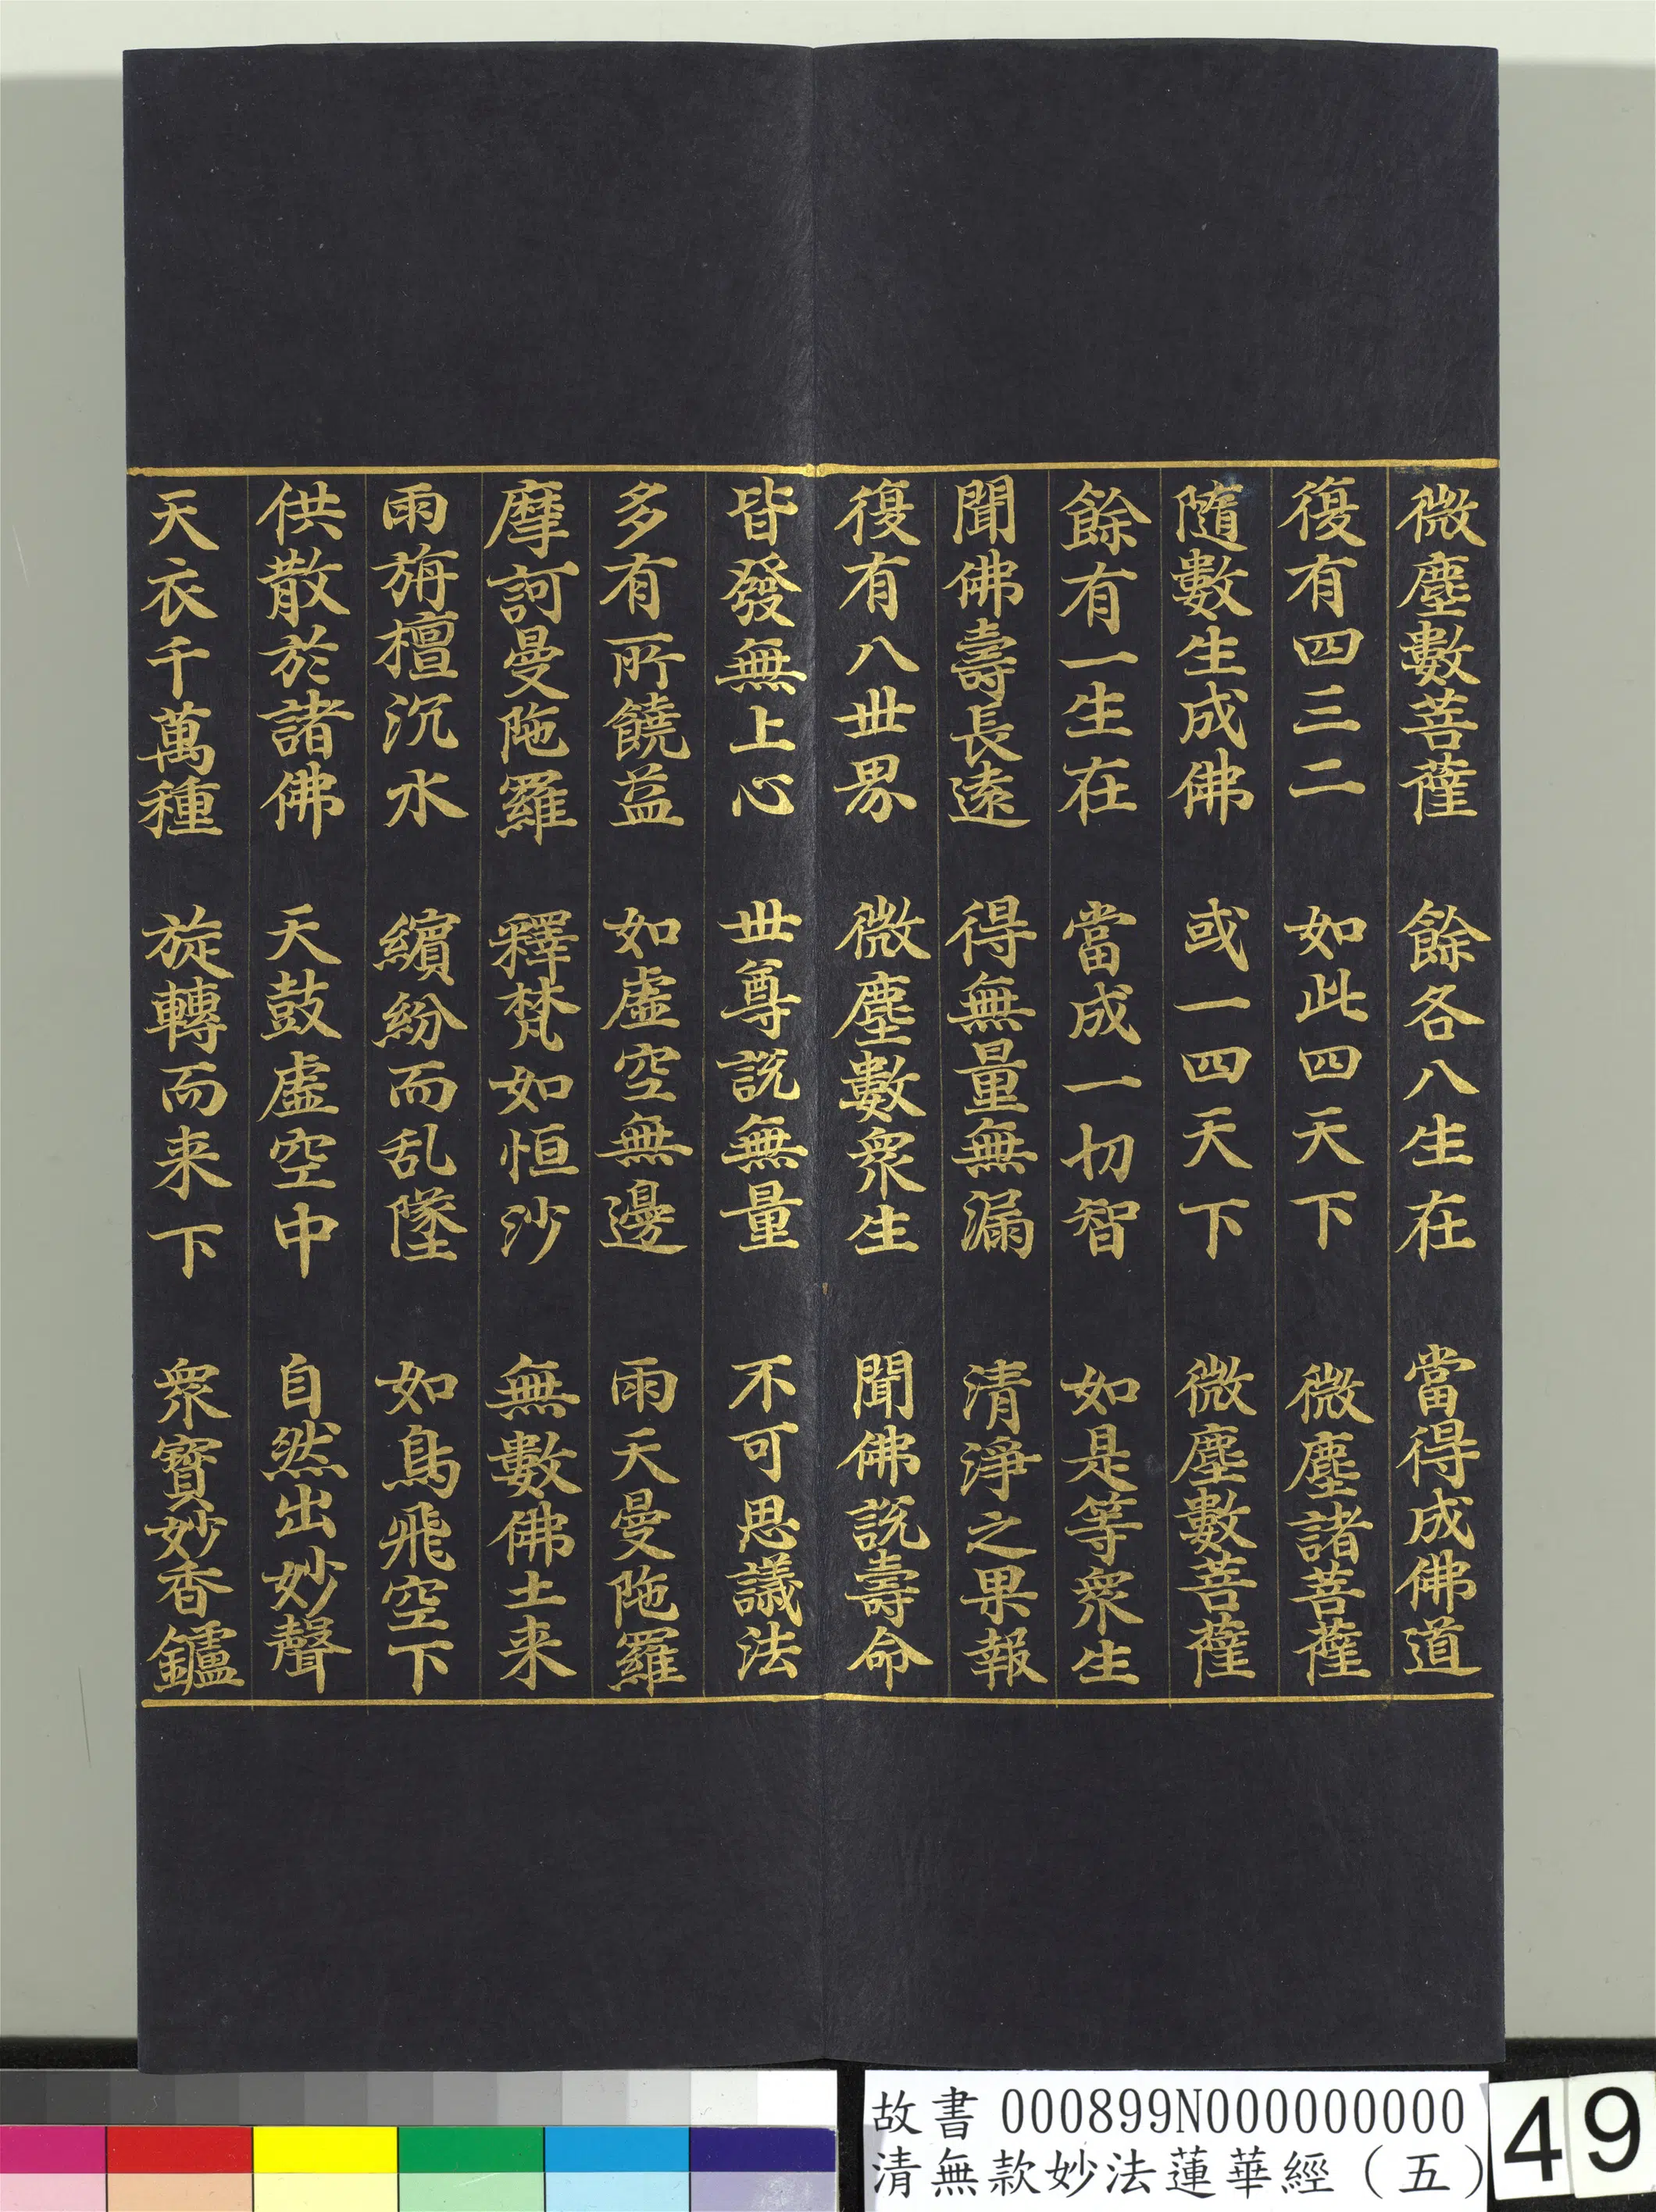 微塵數菩薩　餘各八生在　當得成佛道
復有四三二　如此四天下　微塵諸菩薩
隨數生成佛　或一四天下　微塵數菩薩
餘有一生在　當成一切智　如是等眾生
聞佛壽長遠　得無量無漏　清淨之果報
復有八世界　微塵數眾生　聞佛說壽命
皆發無上心　世尊說無量　不可思議法
多有所饒益　如虛空無邊　雨天曼陁羅
摩訶曼陁羅　釋梵如恒沙　無數佛土来
雨旃檀沉水　繽紛而乱墜　如鳥飛空下
供散於諸佛　天鼓虛空中　自然出妙聲
天衣千萬種　旋轉而来下　眾寶妙香鑪
故書 000899N000000000
清無款妙法蓮華經（五）
49